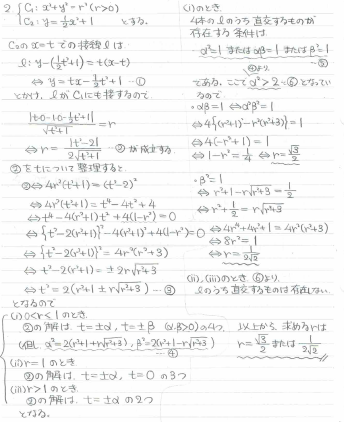 2 { C₁: x²+y²=r² (r>0)
C₂: y=½x²+1 とする。
C₂の x=t での接線 l は
l: y-(½t²+1)=t(x-t)
⇔ y=tx-½t²+1 …①
とかけ、lがC₁にも接するので
|t·0-1·0-½t²+1| / √(t²+1) = r
⇔ r=|t²-2| / 2√(t²+1) …② が成立する
②をtについて整理すると
②⇔ 4r²(t²+1)=(t²-2)²
⇔ 4r²(t²+1)=t⁴-4t²+4
⇔ t⁴-4(r²+1)t²+4(1-r²)=0
⇔ {t²-2(r²+1)}²-4(r²+1)²+4(1-r²)=0
⇔ {t²-2(r²+1)}²=4r²(r²+3)
⇔ t²-2(r²+1)=±2r√(r²+3)
⇔ t²=2(r²+1±r√(r²+3)) …③
となるので
(i) 0<r<1のとき
②の解は、t=±α, t=±β (α,β>0)の4つ
(但し α²=2(r²+1+r√(r²+3)), β²=2(r²+1-r√(r²+3)))
…④
(ii) r=1のとき
②の解は、t=±α, t=0 の3つ
(iii) r>1のとき
②の解は、t=±α の2つ
となる。
(i)のとき、
4本のlのうち直交するものが
存在する条件は
α²=1 または αβ=1 または β²=1
…⑤
である。ここで④より α²>2…⑥となってい
るので
・αβ=1 ⇔ α²β²=1
⇔ 4{(r²+1)²-r²(r²+3)}=1
⇔ 4(-r²+1)=1
⇔ 1-r²=¼ ⇔ r=√3/2
・β²=1
⇔ r²+1-r√(r²+3)=½
⇔ r²+½=r√(r²+3)
⇔ 4r⁴+4r²+1=4r²(r²+3)
⇔ 8r²=1
⇔ r=1/2√2
(ii),(iii)のとき ⑥より、
lのうち直交するものは存在しない
以上から、求めるrは
r=√3/2 または 1/2√2